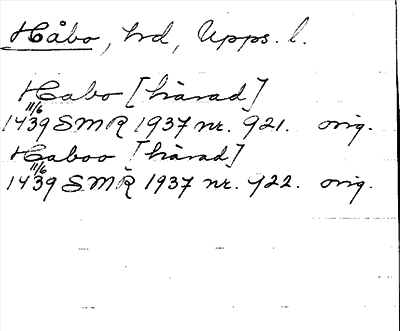 Håbo, hd, Upps. l.
Habo [härad]
11/6
1439 SMR 1937 nr. 921. orig.
Haboo [härad]
11/6
1439 SMR 1937 nr. 922. orig.